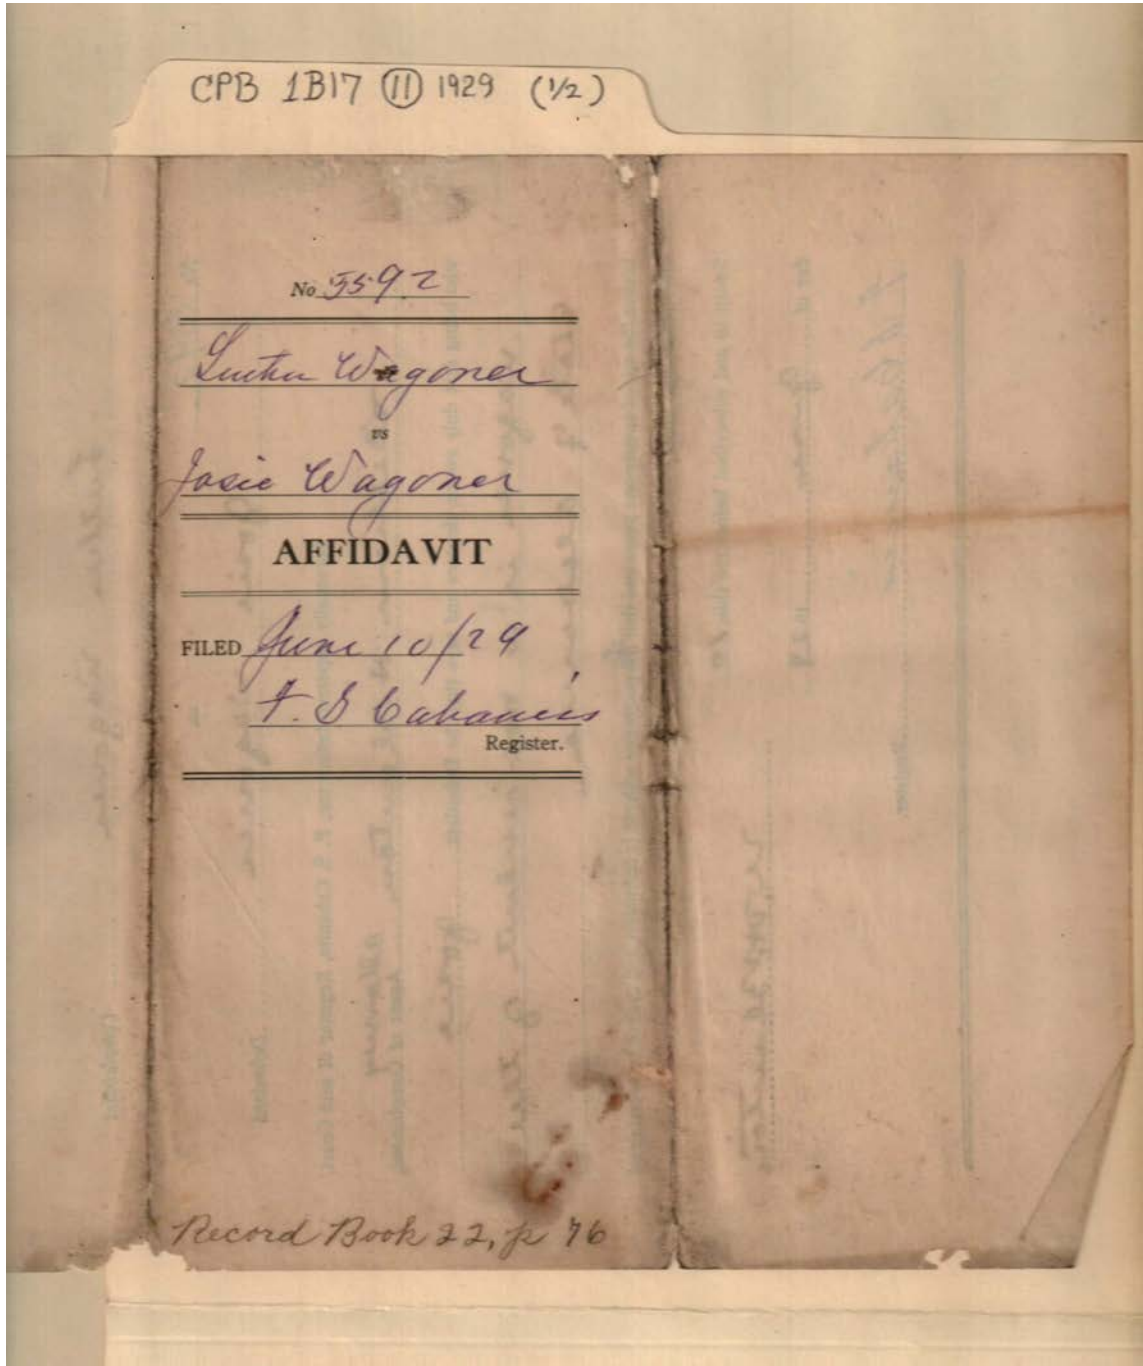 CPB 1B17 (11) 1929 (1/2)
No 5592
Luther Wagoner
vs
Josie Wagoner
AFFIDAVIT
FILED June 10/29
F. S Cabaniss
Register.
Record Book 22, p 76